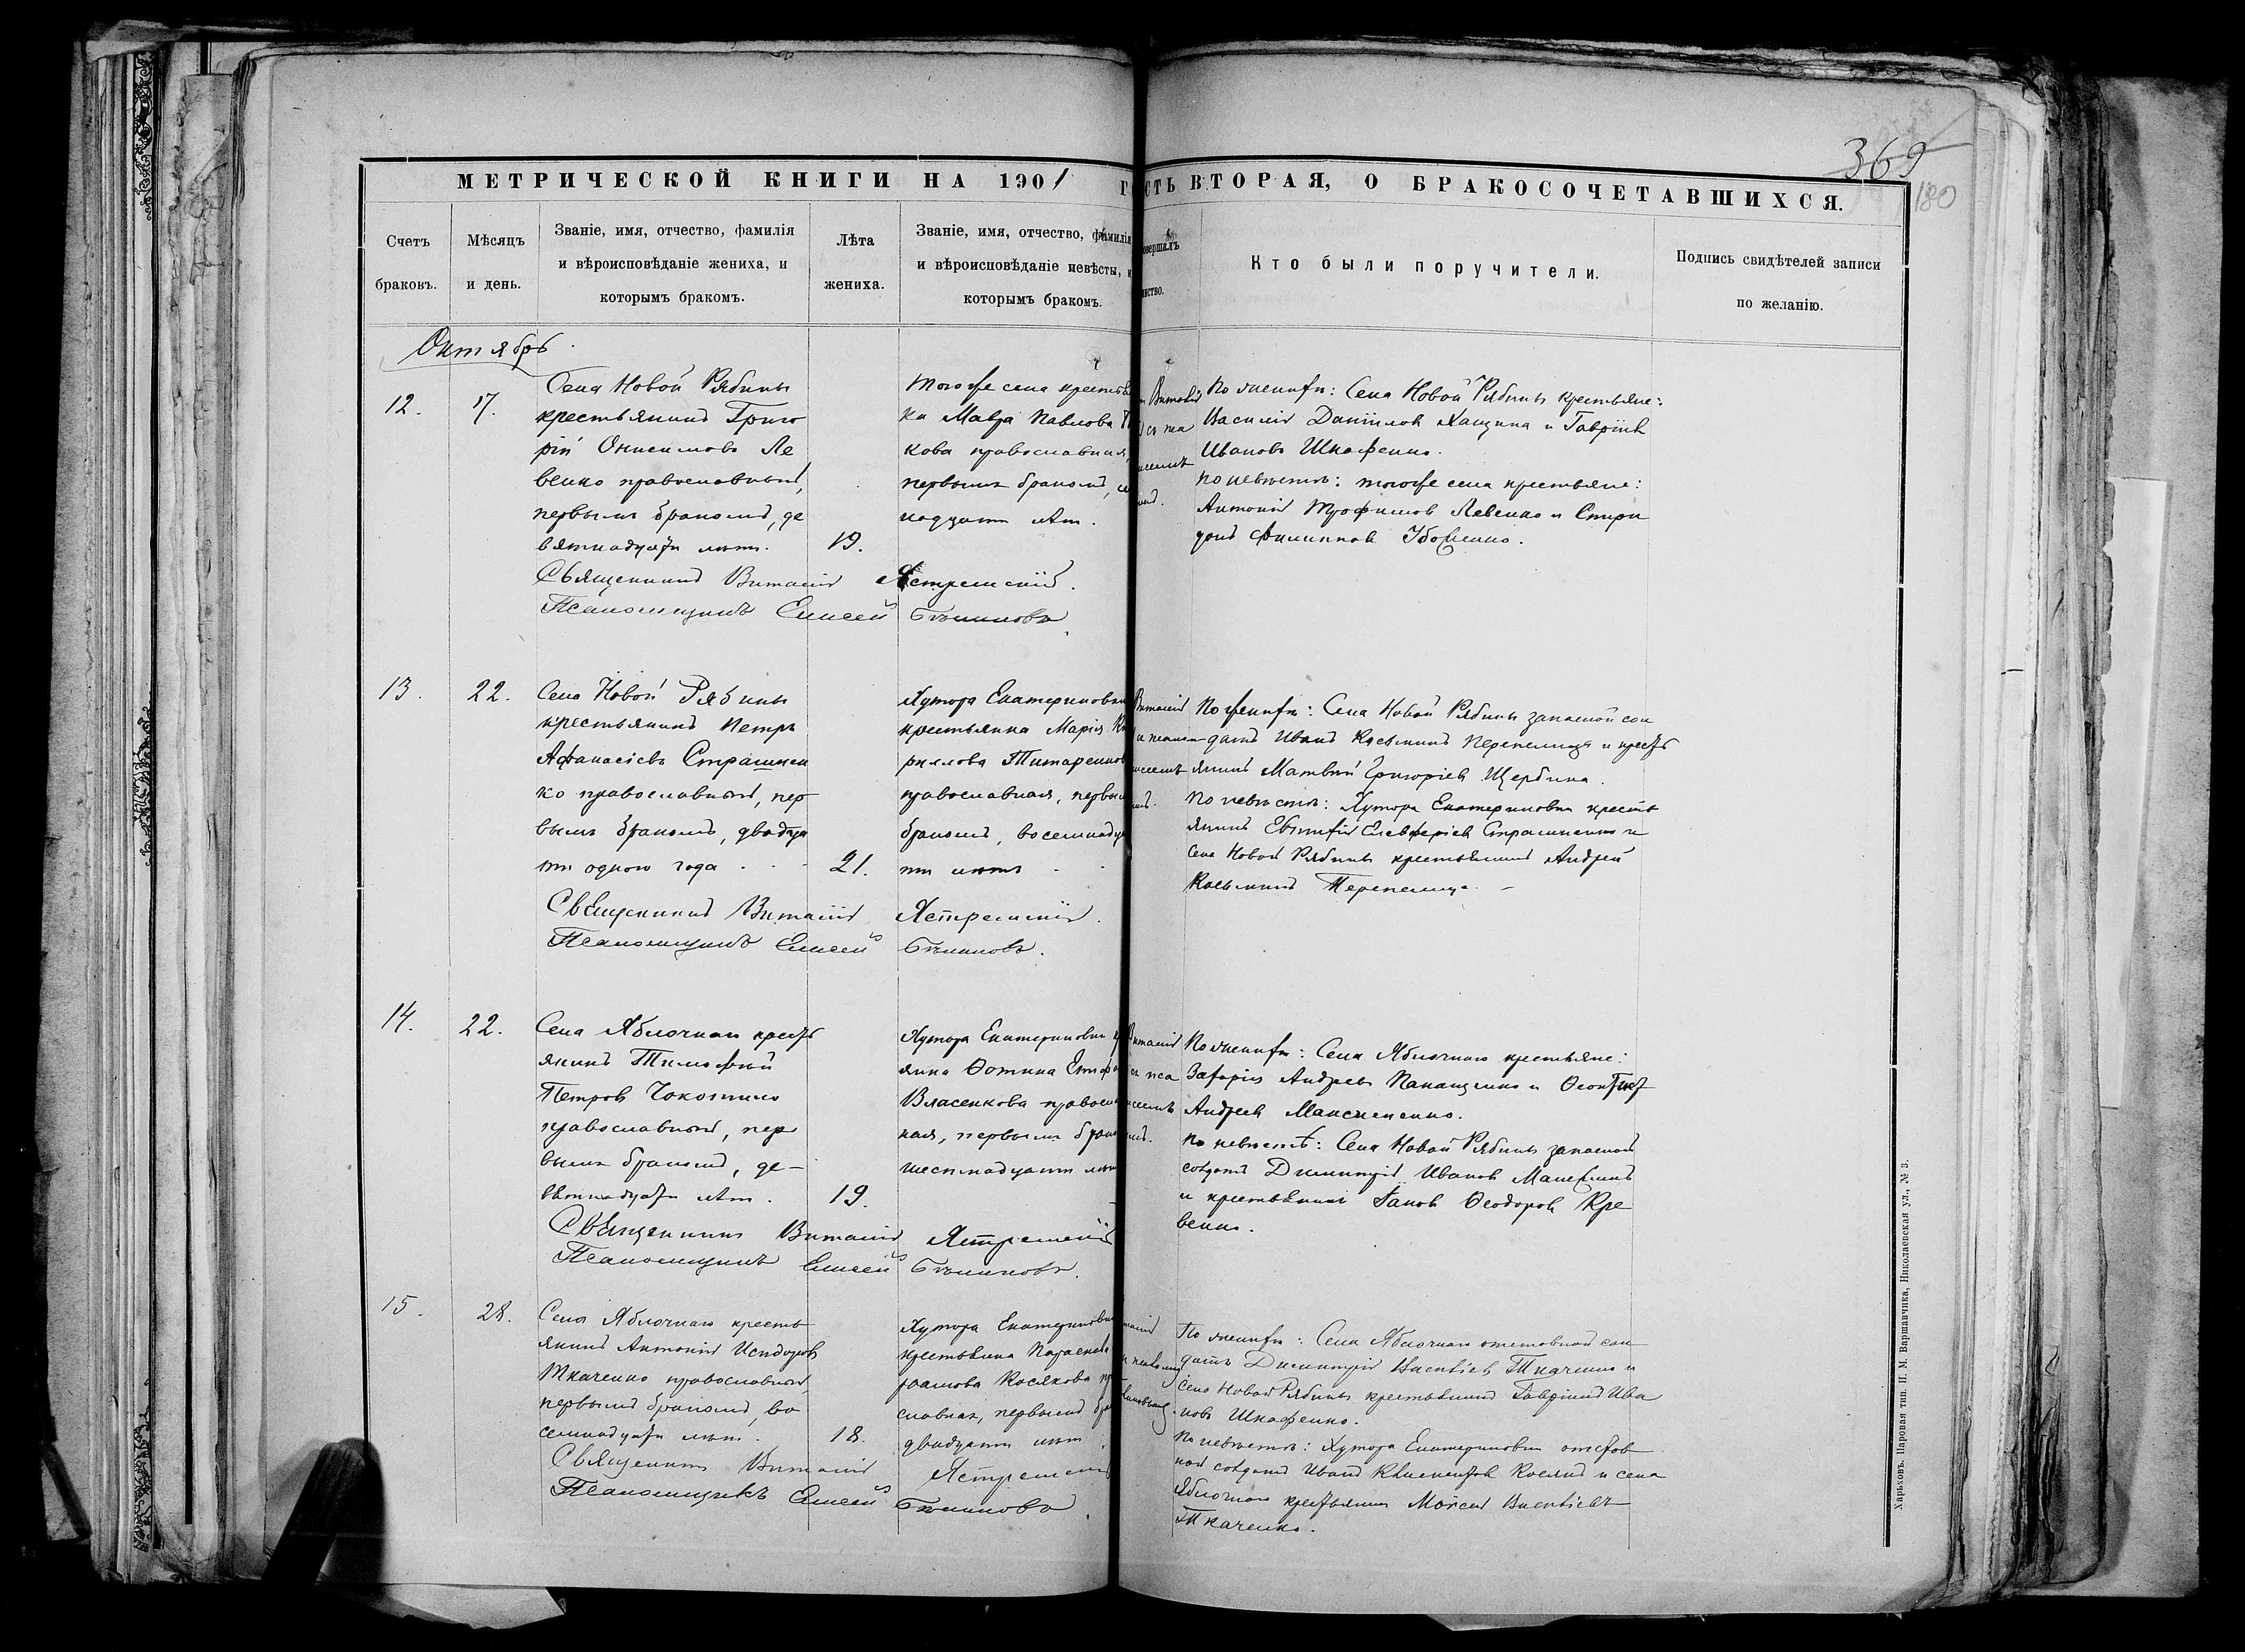 369
180
МЕТРИЧЕСКОЙ КНИГИ НА 1901 Г
СТЬ ВТОРАЯ, О БРАКОСОЧЕТАВШИХСЯ.
Счетъ браковъ.
Мѣсяцъ и день.
Званіе, имя, отчество, фамилія
и вѣроисповѣданіе жениха, и
которымъ бракомъ.
Лѣта жениха.
Званіе, имя, отчество, фамилія
и вѣроисповѣданіе невѣсты, и
которымъ бракомъ.
овершалъ
нство.
Кто были поручители.
Подпись свидѣтелей записи
по желанію.
Октябрь
12.
17.
Села Новой Рябины
крестьянинъ Григо
рій Онисимовъ Ле
венко православный,
первымъ бракомъ, де
вятнадцати лѣтъ.
19.
Тогоже села крестья
ка Мавра Павлова
кова православная,
первымъ бракомъ, се
надцати лѣт.
По женихѣ: Села Новой Рябины крестьяне:
Василій Даніилов Хащина и Гавріилъ
Ивановъ Шкафенко.
По невѣстѣ: тогоже села крестьяне:
Антоній Трофимов Левенко и Спири
донъ Филиппов
Священникъ Виталій Ястремскій.
Псаломщикъ Елисей
13.
22.
Села Новой Рябины
крестьянинъ Петръ
Афанасіевъ Страшнен
ко православный, пер
вымъ бракомъ, двадца
ти одного года
21.
Хутора Екатериновки
крестьянка Марія Ки
риллова Титаренков
православная, первым
бракомъ, восемнадца
ти лѣтъ
По женихѣ: Села Новой Рябины запасной сол
датъ Иванъ Косьминъ Перепелица и кресть
янинъ Матвѣй Григоріев Щербина.
По невѣстѣ: Хутора Екатериновки кресть
янинъ Евтихій Елевферіев Страшненко и
села Новой Рябины крестьянинъ Андрей
Косьминъ Перепелица.
Священникъ Виталій Ястремскій.
Псаломщикъ Елисей
14.
22.
Села Яблочнаго кресть
янинъ Тимофей
Петровъ
православный, пер
вымъ бракомъ, де-
вятнадцати лѣт.
19.
Хутора Екатериновки кр
янка Фотина
Власенкова правосла
ная, первымъ брако
шестнадцати лѣт
По женихѣ: Села Яблочнаго крестьяне:
Захарія Андреев Панащенко и
Андреев Максименко.
По невѣстѣ: Села Новой Рябины запасной
солдатъ Димитрій Иванов
и крестьянинъ Іаков Феодоров Кре
венко.
Священникъ Виталій Ястремскій
Псаломщикъ Елисей
15.
28.
Села Яблочнаго кресть
янинъ Антоній Исидоров
Ткаченко православный,
первымъ бракомъ, во
семнадцати лѣт.
18.
Хутора Екатериновки
крестьянка Параскева
Косякова пр
славная, первымъ бра
двадцати лѣт.
По женихѣ: Села Яблочнаго отставной сол
датъ Димитрій Васильев Ткаченко и
села Новой Рябины крестьянинъ Гавріилъ Ива
новъ Шкафенко.
По невѣстѣ: Хутора Екатериновки отстав
ной солдатъ Иванъ Климентов Косякъ и села
Яблочнаго крестьянинъ Моисей Васильевъ
Ткаченко.
Священникъ Виталій Ястремскій
Псаломщикъ Елисей
Харьковъ. Паровая тип. И. М. Варшавчика, Николаевская ул., № 3.